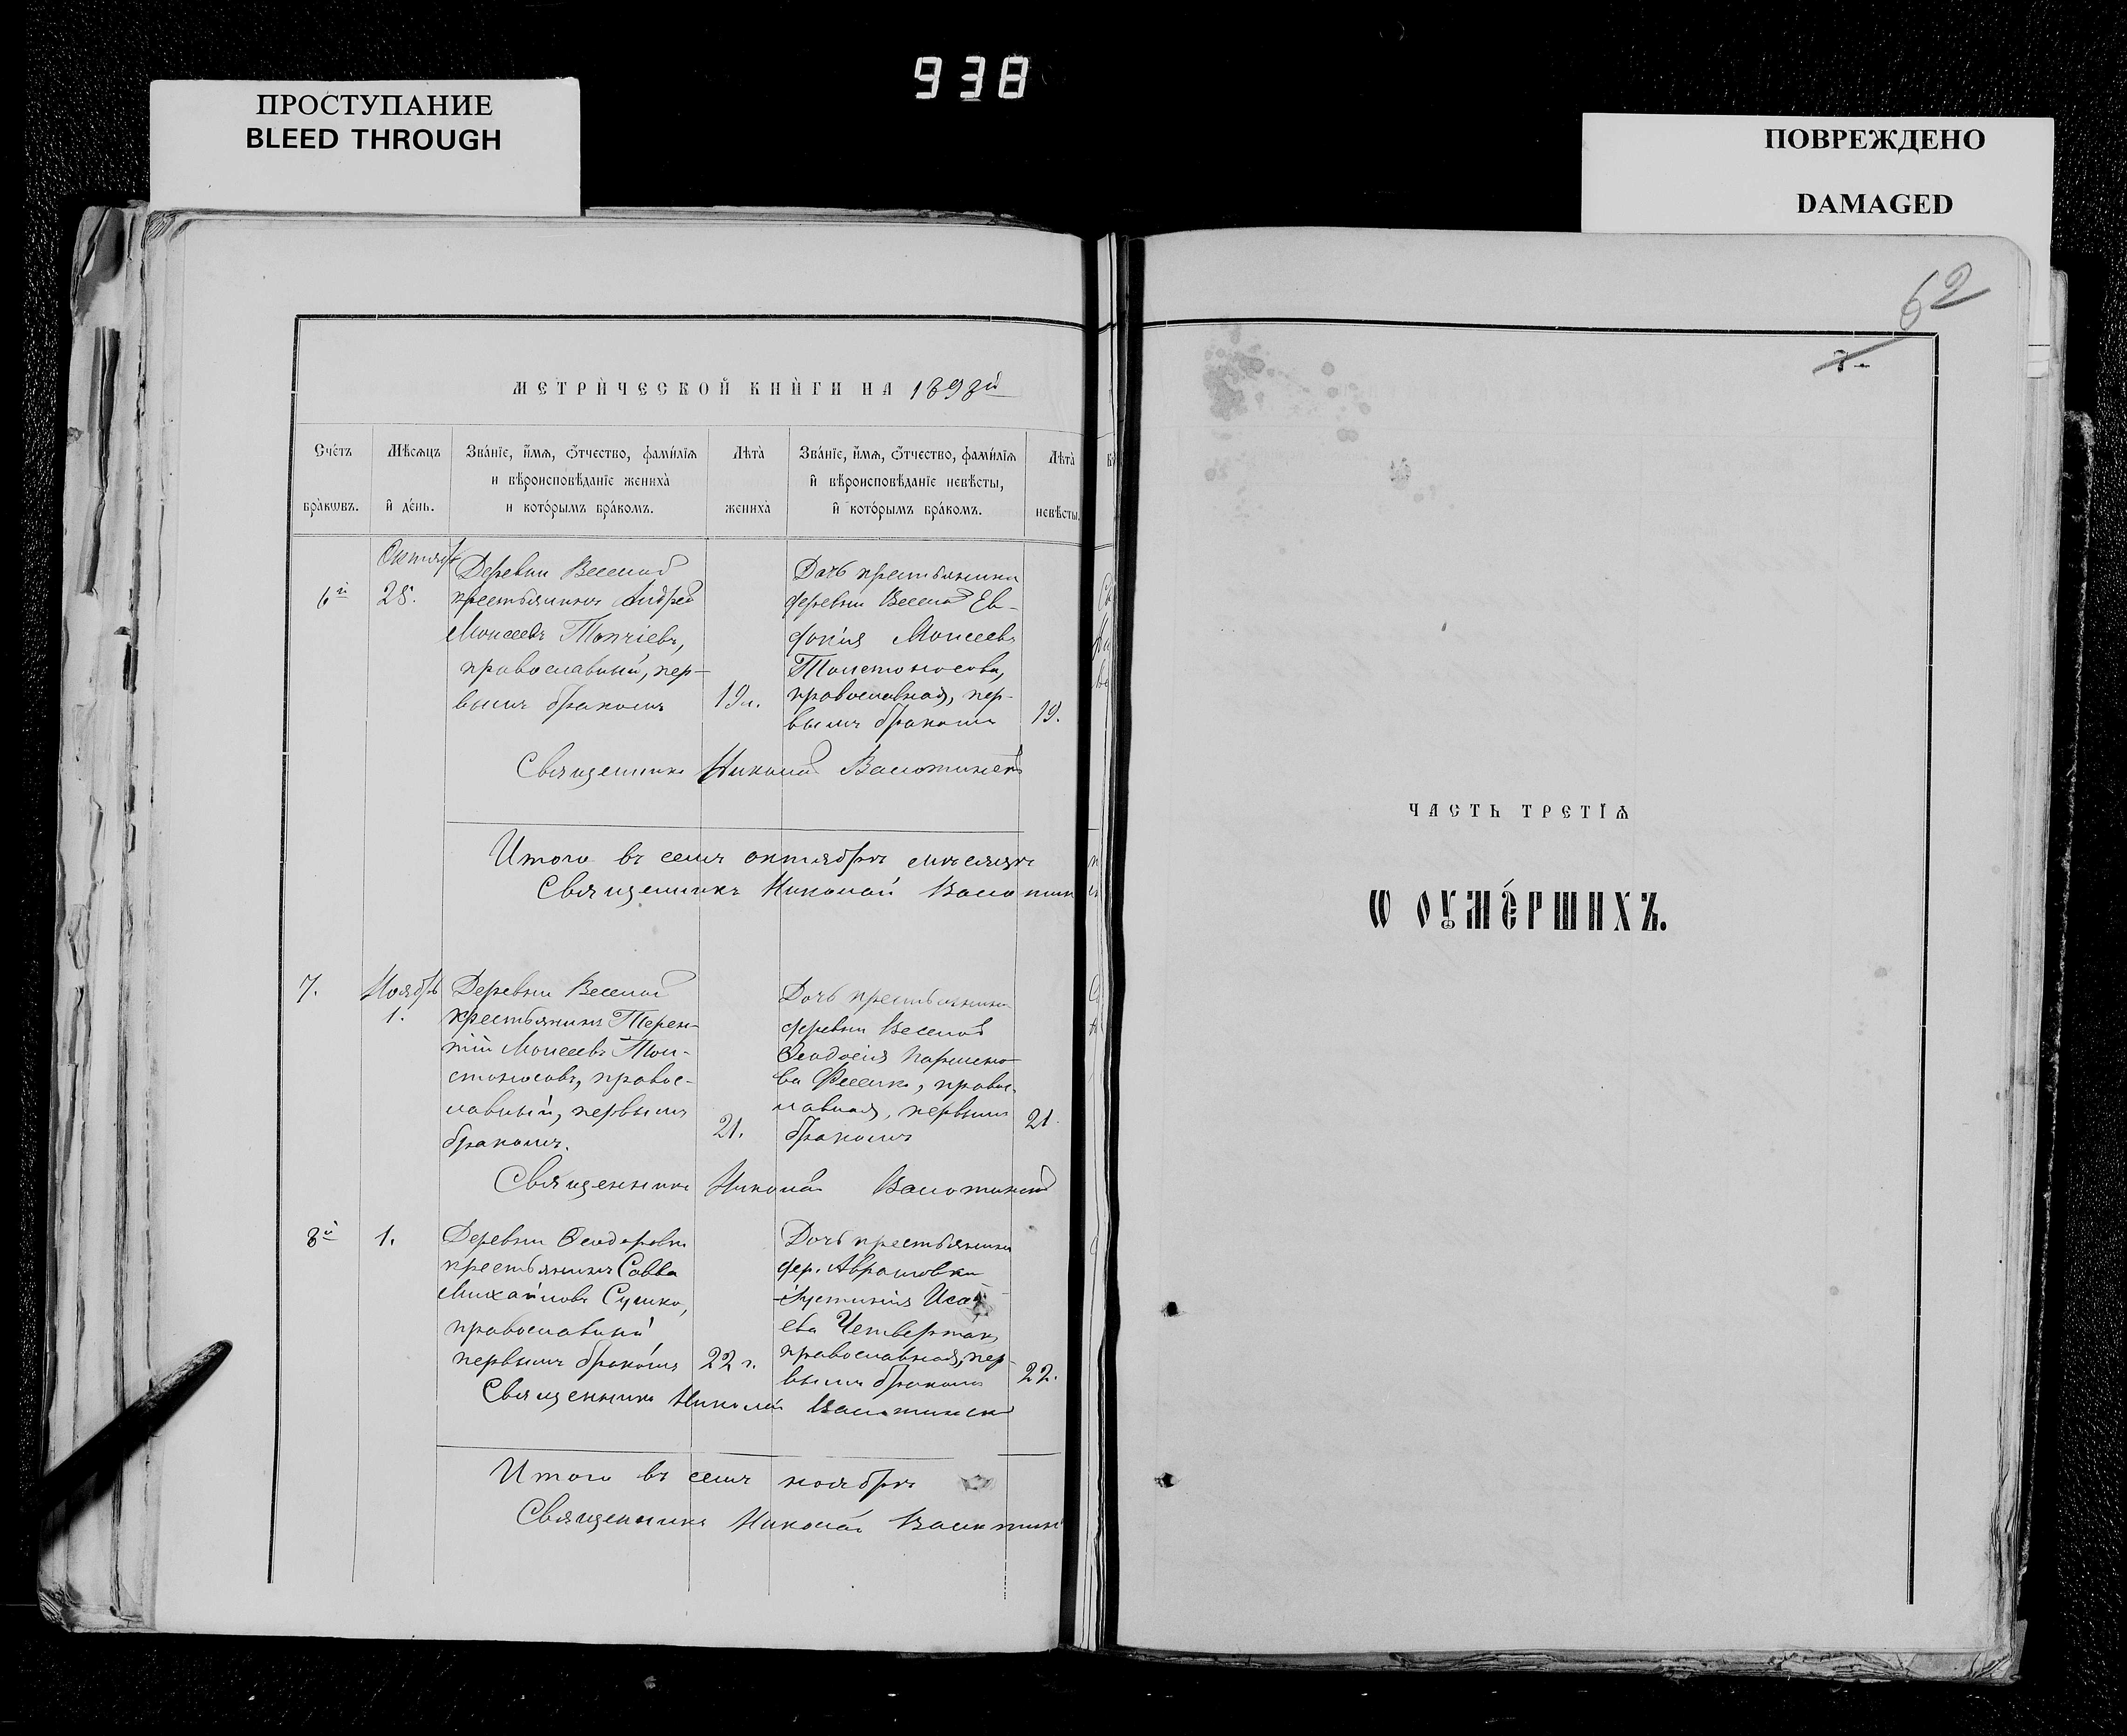 938
ПРОСТУПАНИЕ
BLEED THROUGH
ПОВРЕЖДЕНО
DAMAGED
62
МЕТРИ́ЧЕСКОЙ КНИ́ГИ НА 1898й
Сче́тъ
бра́кѡвъ.
Мѣсяцъ
и҆ де́нь.
Зва́нїе, и҆́мѧ, ѻ҆́тчество, фами́лїѧ
и вѣроисповѣданїе жениха̀
и кото́рымъ бра́комъ.
Лѣта̀
жениха̀
Зва́нїе, и҆́мѧ, ѻ҆́тчество, фами́лїѧ
и҆ вѣроисповѣданїе невѣсты,
и҆ кото́рымъ бра́комъ.
Лѣта̀
невѣсты.
6й
Октябр
28.
Деревни Веселой
крестьянинъ Андрей
Моисеевъ Топчіевъ,
православный, пер-
вымъ бракомъ
19л.
Дочь крестьянина
деревни Веселой Ев-
фонія Моисеева
Толстоносова,
православная, пер-
вымъ бракомъ
19.
Священникъ Николай
Итого въ семъ октябрѣ мѣсяцѣ
Священникъ Николай
7.
Ноябрь
1.
Деревни Веселой
крестьянинъ Терен-
тій Моисеевъ Тол-
стоносовъ, правос-
лавный, первымъ
бракомъ.
21.
Дочь крестьянина
деревни Веселой
Ѳеодосія Пармено-
ва правос-
лавная, первымъ
бракомъ
21.
Священникъ Николай
8й
1.
Деревни Ѳеодоровки
крестьянинъ Савва
Михайловъ Сушко,
православный
первымъ бракомъ
22 г.
Дочь крестьянина
дер. Авраамовки
Іустинія Иса
ева Четвертакъ
православная, пер-
вымъ бракомъ
22.
Священникъ Николай
Итого въ семъ ноябрѣ
Священникъ Николай
ЧАСТЬ ТРЕТЇѦ
Ѡ ОУ҆МЕ́РШИХЪ.